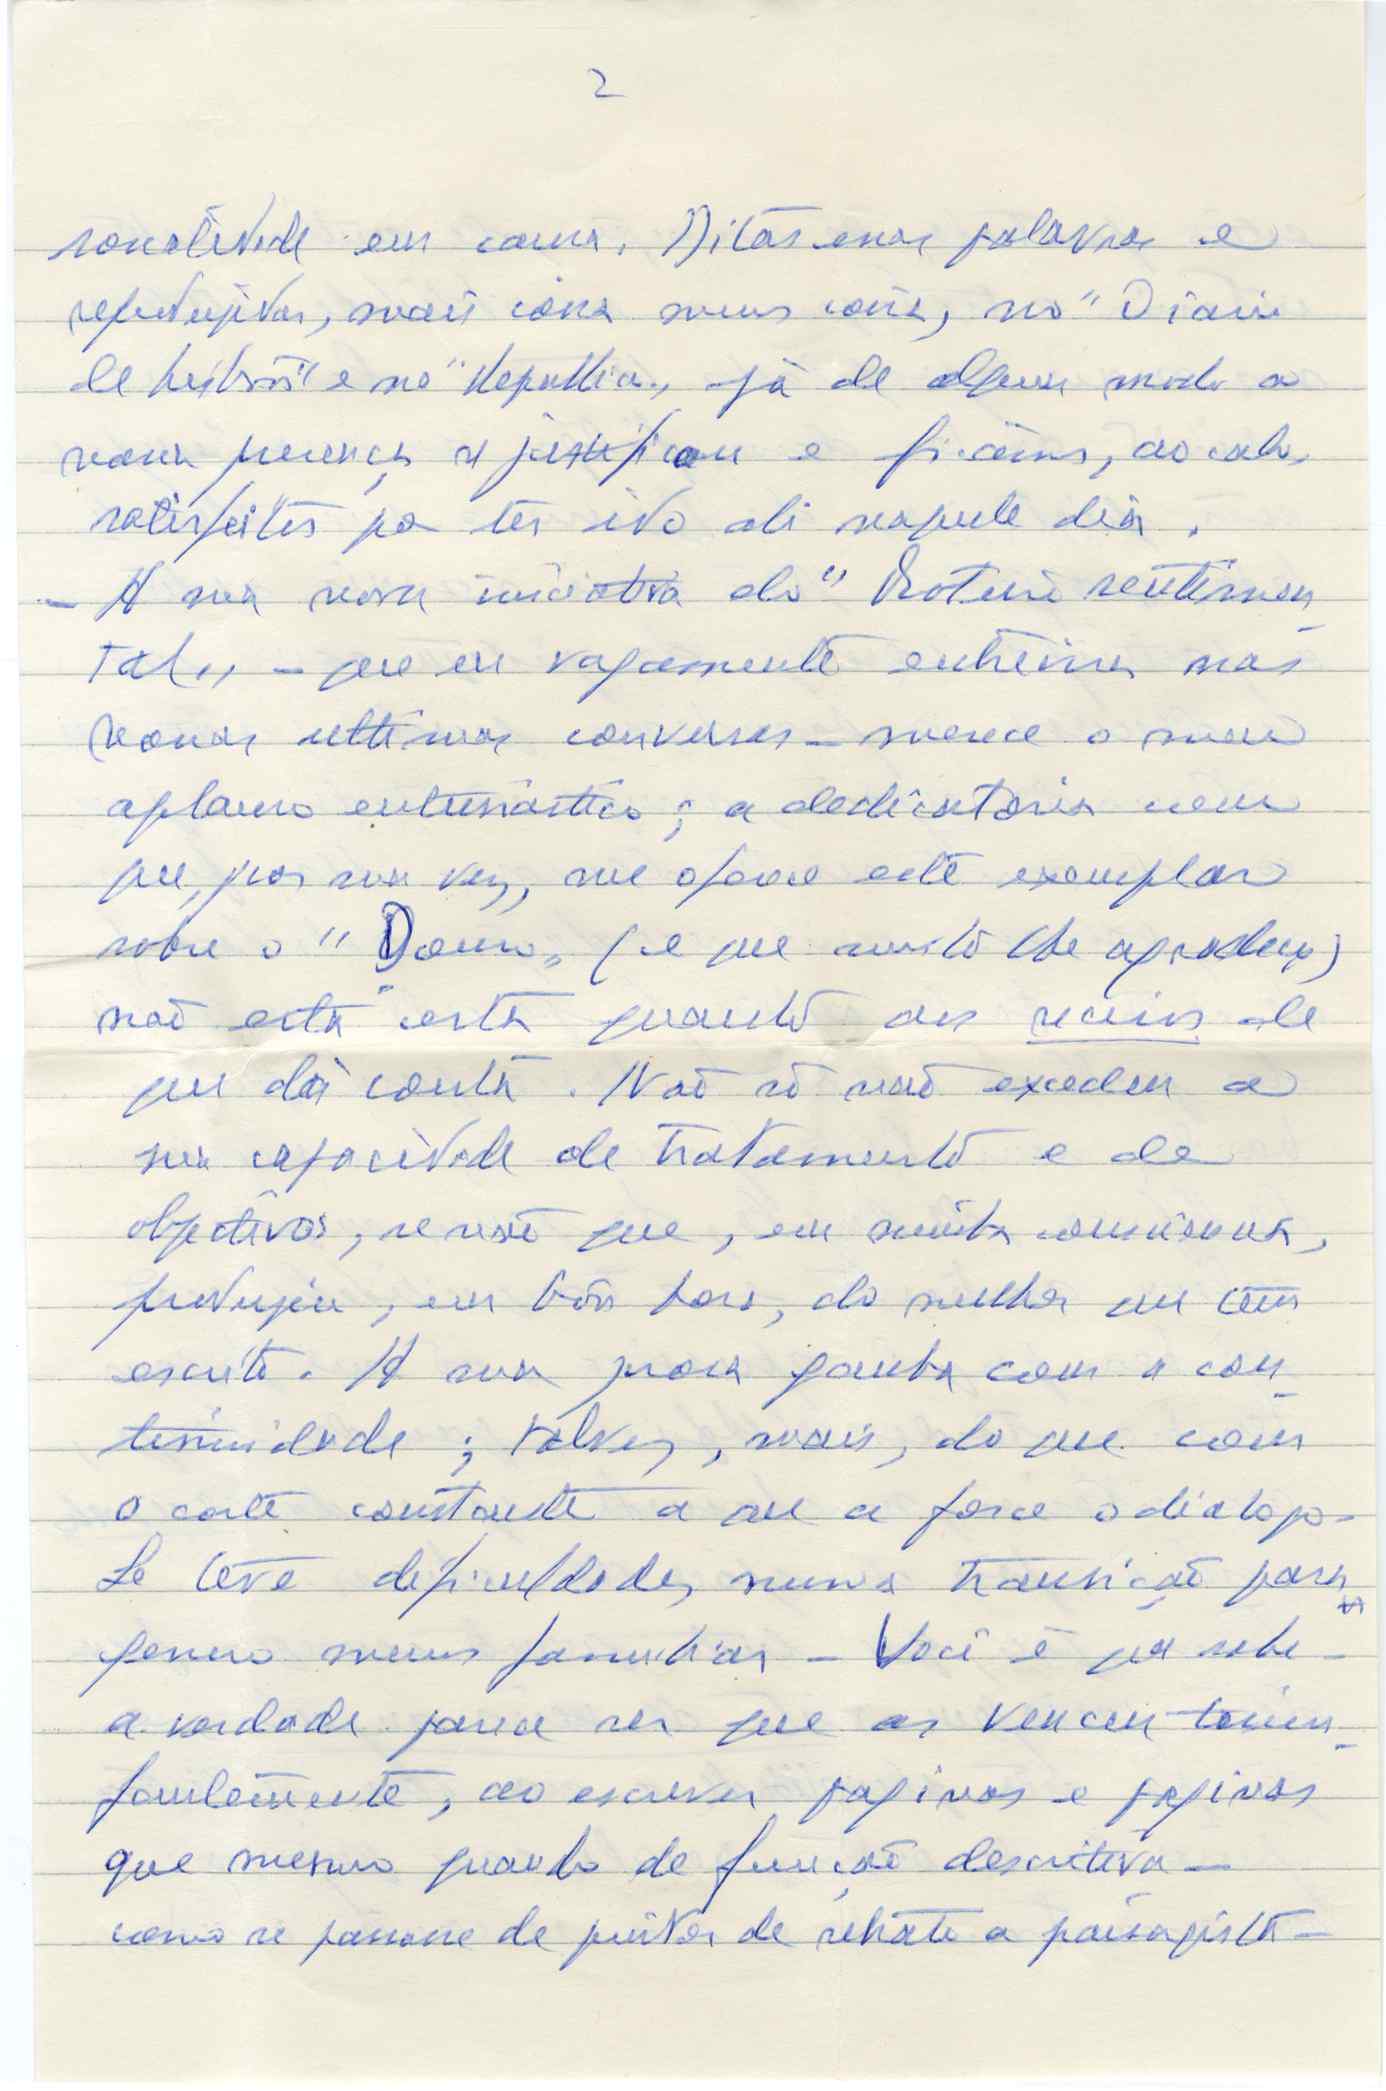 2
sonalidade em causa. Ditas essas palavras e
reproduzidas, mais coisa menos coisa, no "Diario
de Lisboa" e no "Republica", já de algum modo a
nossa presença se justificou e ficámos, ao cabo,
satisfeitos por ter ido ali naquele dia.
- A sua nova iniciativa do "Roteiro sentimen-
tal" - que eu vagamente entrevira nas
nossas ultimas conversas - merece o meu
aplauso entusiastico; a dedicatoria com
que, por sua vez, me oferece este exemplar
sobre o "Douro" (e que muito lhe agradeço)
não está certa quanto aos receios de
que dá conta. Não só não excedeu a
sua capacidade de tratamento e de
objectivos, senão que, em minha consciencia,
produziu, em bôa hora, do melhor que tem
escrito. A sua prosa ganha com a con-
tinuidade; talvez, mais, do que com
o corte constante a que a força o dialogo.
Se teve dificuldades numa transição para
genero menos familiar - Você é que sabe -
a verdade parece ser que as venceu triun-
fantemente, ao escrever paginas e paginas
que mesmo quando de função descritiva -
como se passasse de pintor de retrato a paisagista -